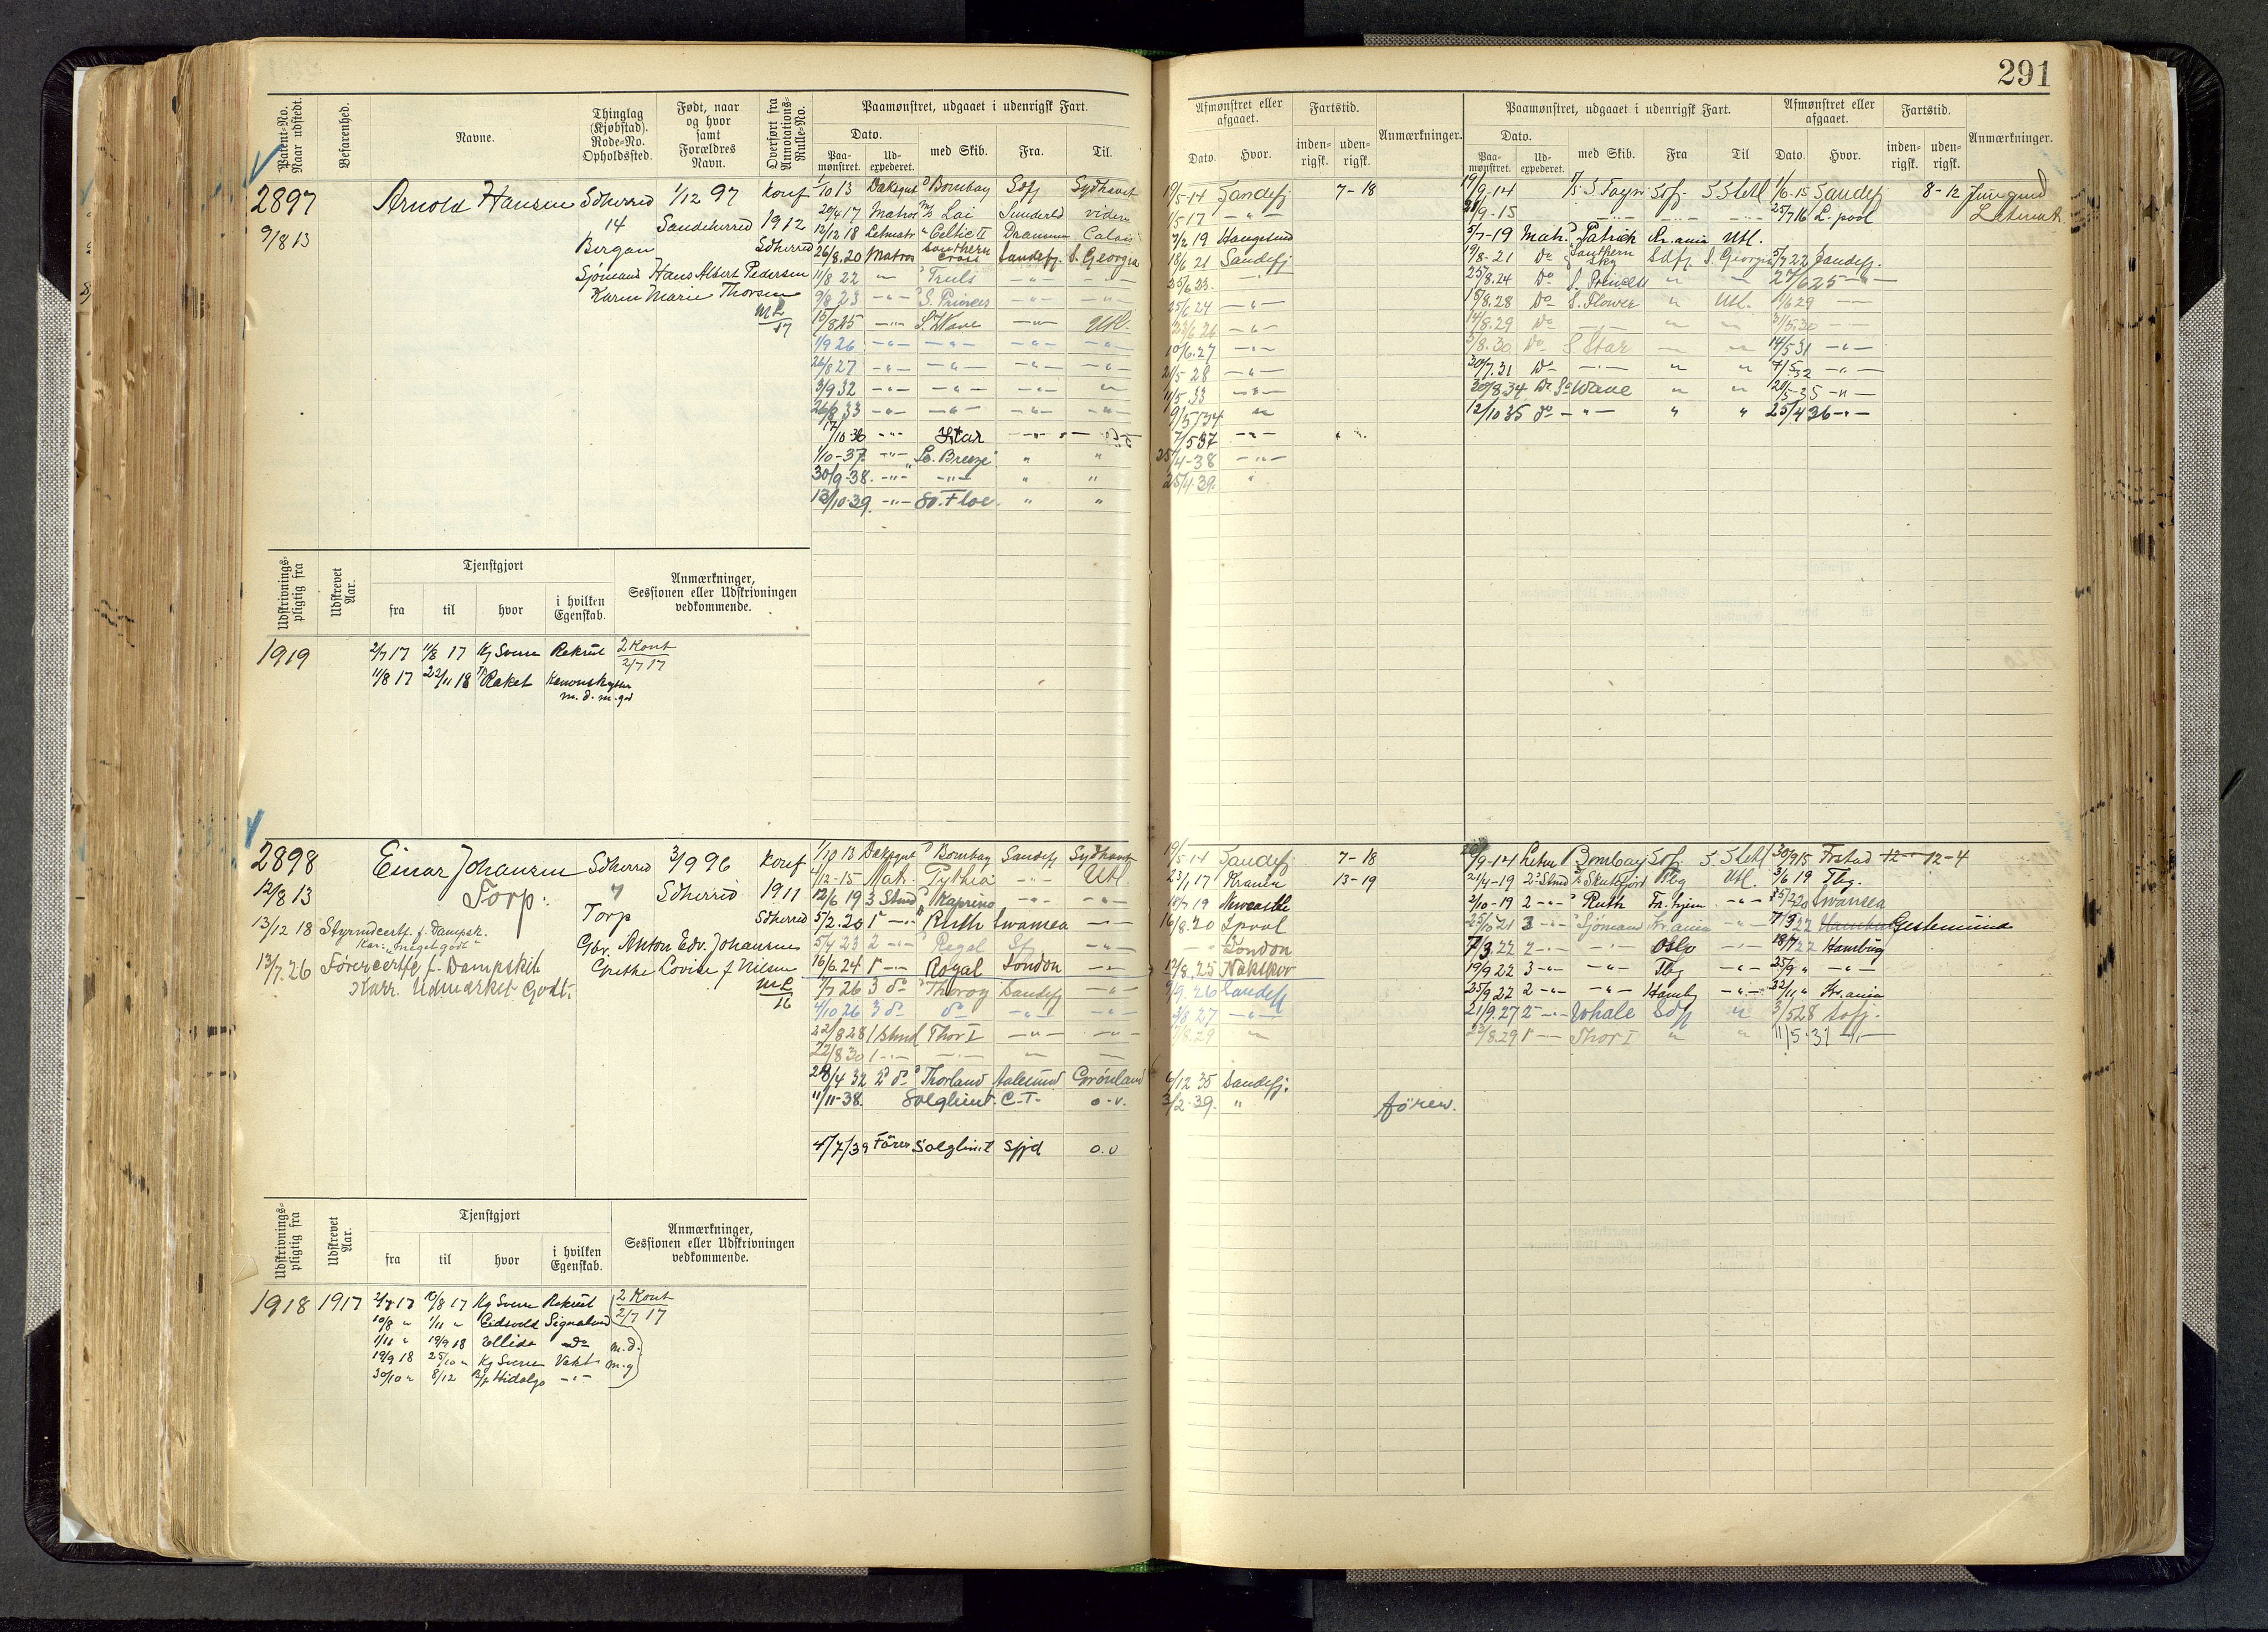 291
Patent-No. Naar udstedt.
Befarenhed.
Navne.
Thinglag (Kjøbstad). Rode-No. Opholdssted.
Født, naar og hvor samt Forældres Navn.
Overført fra Annotations-Rulle-No.
Paamønstret, udgaaet i udenrigsk Fart.
Dato.
Paa-mønstret.
Ud-expederet.
med Skib.
Fra.
Til.
Afmønstret eller afgaaet.
Dato.
Hvor.
Fartstid.
inden-rigsk.
uden-rigsk.
Anmærkninger.
Paamønstret, udgaaet i udenrigsk Fart.
Dato.
Paa-mønstret.
Ud-expederet.
med Skib.
Fra
Til
Afmønstret eller afgaaet.
Dato.
Hvor.
Fartstid.
inden-rigsk.
uden-rigsk.
Anmærkninger.
2897
9/8 13
Arnold Hansen
Sdherred
14
Bergan
1/12 97
Sandeherred
Sjømand Hans Albert Pedersen
Karen Marie Thorsen
Konf
1912
Sdherred
ML
17
1/10 13 Daksgut Bombay Sdfj Sydhavet
20/4 17 Matros Lai Sunderld viden
12/12 18 Letmatr Celtic II Drammen Calais
26/8.20 Matros Southern Cross Sandefj. S. Georgia
11/8 22 " Truls -"- -"-
9/8 23 -"- S. Princess -"- -"-
15/8.25 -"- S. Wave -"- Utl.
1/9 26 -"- -"- -"- -"-
26/8 27 -"- -"- -"- -"-
3/9 32 -"- -"- -"- "
26/8 33 -"- -"- -"- -"-
17/10 36 -"- Star -"-
1/10-37 -"- So. Breeze " "
30/9-38. -"- -"- " "
13/10-39. -"- So. Floe. " "
19/5-14 Sandefj 7-18
1/5 17 -"-
7/2 19 Haugesund
18/6 21 Sandefj
25/6 23.
25/6 24 -"-
23/6 26 -"-
10/6.27 -"-
21/5 28 -"-
11/5 33 -"-
9/5/34 "
7/5 37 -"-
25/4-38 -"-
25/4.39. "
19/9-14 Sdfj. S. Shetl 1/6-15 Sandefj 8-12 Jungmd
21/9-15 -"- -"- -"- 25/7 16 L.pool Letmat
5/7-19 Matr. Patrick Kr.ania Utl.
19/8-21 Do Southern Sky Sdfj S. Georgia 5/7 22 Sandefj.
25/8.24 Do S. Princess " " 27/6 25 -"-
15/8.28 Do S. Flower " Utl. 1/6 29 -"-
14/8.29 Do -"- " " 31/5.30 -"-
3/8.30 Do S Star " " 14/5 31 -"-
30/7.31 Do -"- " " 7/5 32 -"-
30/8.34 Do So Wave " " 21/5-35 -"-
12/10 35 do -"- " " 25/4 36 -"-
Udskrivnings-pligtig fra
Udskrevet Aar.
Tjenstgjort
fra
til
hvor
i hvilken Egenskab.
Anmærkninger, Sessionen eller Udskrivningen vedkommende.
1919
2/7 17 11/8 17 Kg Sverre Rekrut 2 Kont
2/7 17
11/8 17 22/11 18 Raket Kanonskytter
m. d. m. god
2898
12/8 13
Einar Johansen
Torp.
Sdherred
7
Torp
3/9 96
Sdherred
Konf
1911
Sdherred
13/12 18 Styrmdcertf. f. Dampsk.
Kar.: "meget godt"
13/7.26 Førercertfc f. Dampskib
Karr. Udmærket Godt.
Gbr. Anton Edv. Johansen
Grethe Lovise f. Nilsen
ML
16
1/10 13 Daksgut Bombay Sandefj Sydhavet
4/12-15 Matr. Pythia -"- Utl.
12/6 19 3 Stmd Kaprino -"- -"-
5/2.20 1 -"- Ruth Swansea -"-
5/4 23 2 -"- Regal Sf -"-
16/6.24 1 -"- Royal London -"-
7/7 26 3 do Thorøy Sandefj -"-
4/10 26 3 do do -"- -"-
22/8 28 1 Stmd Thor I -"- -"-
22/8 30 1 -"- -"- "
28/4 32 2 do Thorland Aalesund Grønland
11/11-38. Solglimt. C.T. o.v.
4/7/39 Fører Solglimt Sfjd o.v
19/5-14 Sandefj 7-18
23/1 17 Krania 13-19
18/7 19 Newcastle
16/8.20 Lpool
-"- London
12/8.25 Nakskov
9/9.26 Sandefj
3/8 27 -"-
1/8.29 "
6/12 35 Sandefj:
3/2-39. " fører.
20/9-14 Letm Bombay Sdfj. S. Shetl 30/9 15 Frstad 12- 12-4
21/4-19 2. Stmd Skutefjord Tbg Utl. 3/6 19 Tbg.
2/10-19 2 -"- Ruth Fr.hjem -"- 15/2 20 Swansea
25/10 21 3 -"- Sjømand Kr.ania -"- 7/3 22 Gestemünde
7/3.22 2 -"- -"- Oslo -"- 18/7 22 Hamburg
19/9 22 3 -"- -"- Tbg -"- 25/9 " -"-
25/9 22 2 -"- -"- Hambg -"- 22/11 " Kr.ania
21/9.27 2 -"- Whale Sdfj " 3/5 28 Sdfj.
22/8.29 1 -"- Thor I " " 11/5-31 -"-
Udskrivnings-pligtig fra
Udskrevet Aar.
Tjenstgjort
fra
til
hvor
i hvilken Egenskab.
Anmærkninger, Sessionen eller Udskrivningen vedkommende.
1918 1917 2/7 17 10/8 17 Kg Sverre Rekrut 2 Kont
10/8 " 1/11 " Eidsvold Signalmd 2/7 17
1/11 " 19/9 18 Ellida Do m.d.
19/9 18 25/10 " Kg Sverre Vakt m.g
30/10 " 8/12 B/p Hidalgo -"-